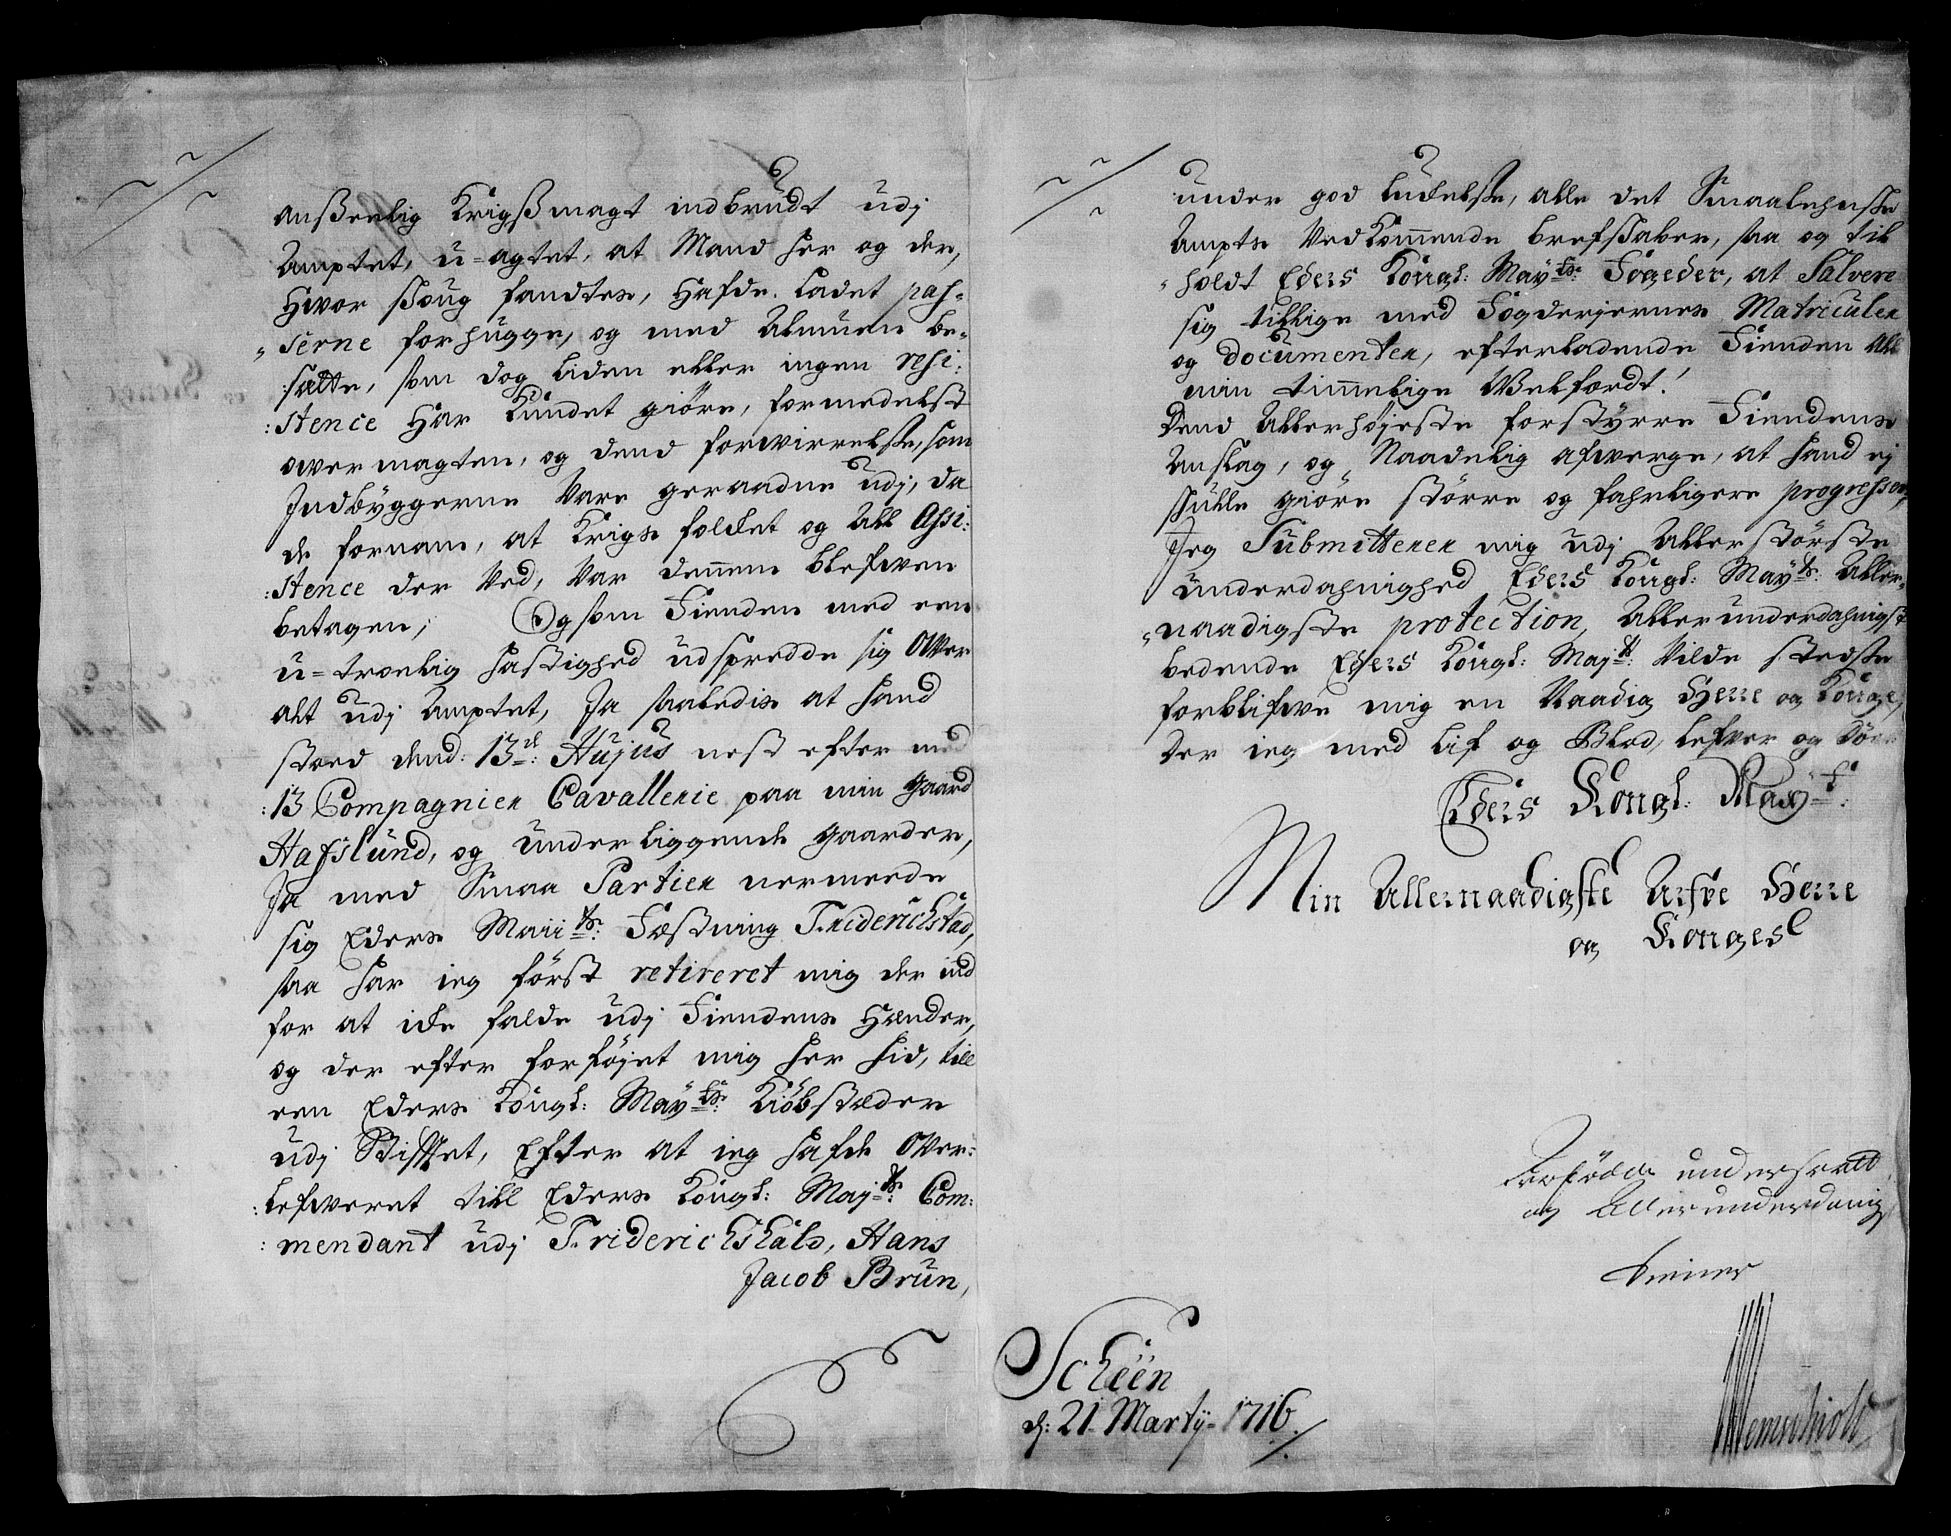 anßeelig Krigßmagt indbrudt udj
Amptet, u-agtet, at Mand her og der,
Hvor skoug fandtes, Hafde ladet pas=
„serne forhugge, og med Almuen be=
:sætte, som dog liden eller ingen resi:
:stence Har kundet giøre, formedelst
overmagten, og dend forvirrelse, som
Indbyggerne vare geraadne udj, da
de fornam, at Krigs folcket og All Assi:
:stence der ved, var dennem blefwen
betagen; Og som Fienden med een
u-troelig hastighed udspredde sig over
alt udj Amptet, Ja saaledis at hand
stoed dend: 13de: Hujus nest efter med
:13 Compagnier Cavallerie paa min gaard
Hafslund, og underliggende gaarder,
Ja med Smaa Partier nermede
sig Eders Maiits: Fæstning Friderichstad,
saa har ieg først retireret mig der ind
for at icke falde udj Fiendens Hænder,
og der efter forføjet mig her hid, till
een Eders Kongl: Mayts: Kiøbstæder
udj Stiftet, Efter at ieg hafde over:
:lefweret till Eders Kongl: Majts: Com:
:mendant udj Friderichshald, Hans
Jacob Brun,
under god luckelse, alle det Smaalehnske
Ampts vedkommende brefskaber, saa og til
„holdt Eders Kongl: Mayts: Fogeder, at Salvere
sig tillige med Fogderjernes Matriculer
og documenter, efterladende Fienden all
min timmelige Velfærdt!
Dend Allerhøjeste forstyrre Fiendens
Anslag, og Naadelig afwerge, at hand ej
skulle giøre større og fahrligere progresser,
Jeg Submitterer mig udj Allerstørste
underdahnighed Eders Kongl: Mayts: Aller=
„naadigste protection, Allerunderdahnigst
bedende Eders Kongl: Majt: vilde stedse
forblifwe mig en Naadig Herre og Konge,
der ieg med lif og Blod, lefver og døer
Eders Kongl: Mayt:
Min Allernaadigste Arfve Herre
og Konges
og Allerunderdanig
tiener
Scheen
d: 21 Martij 1716.